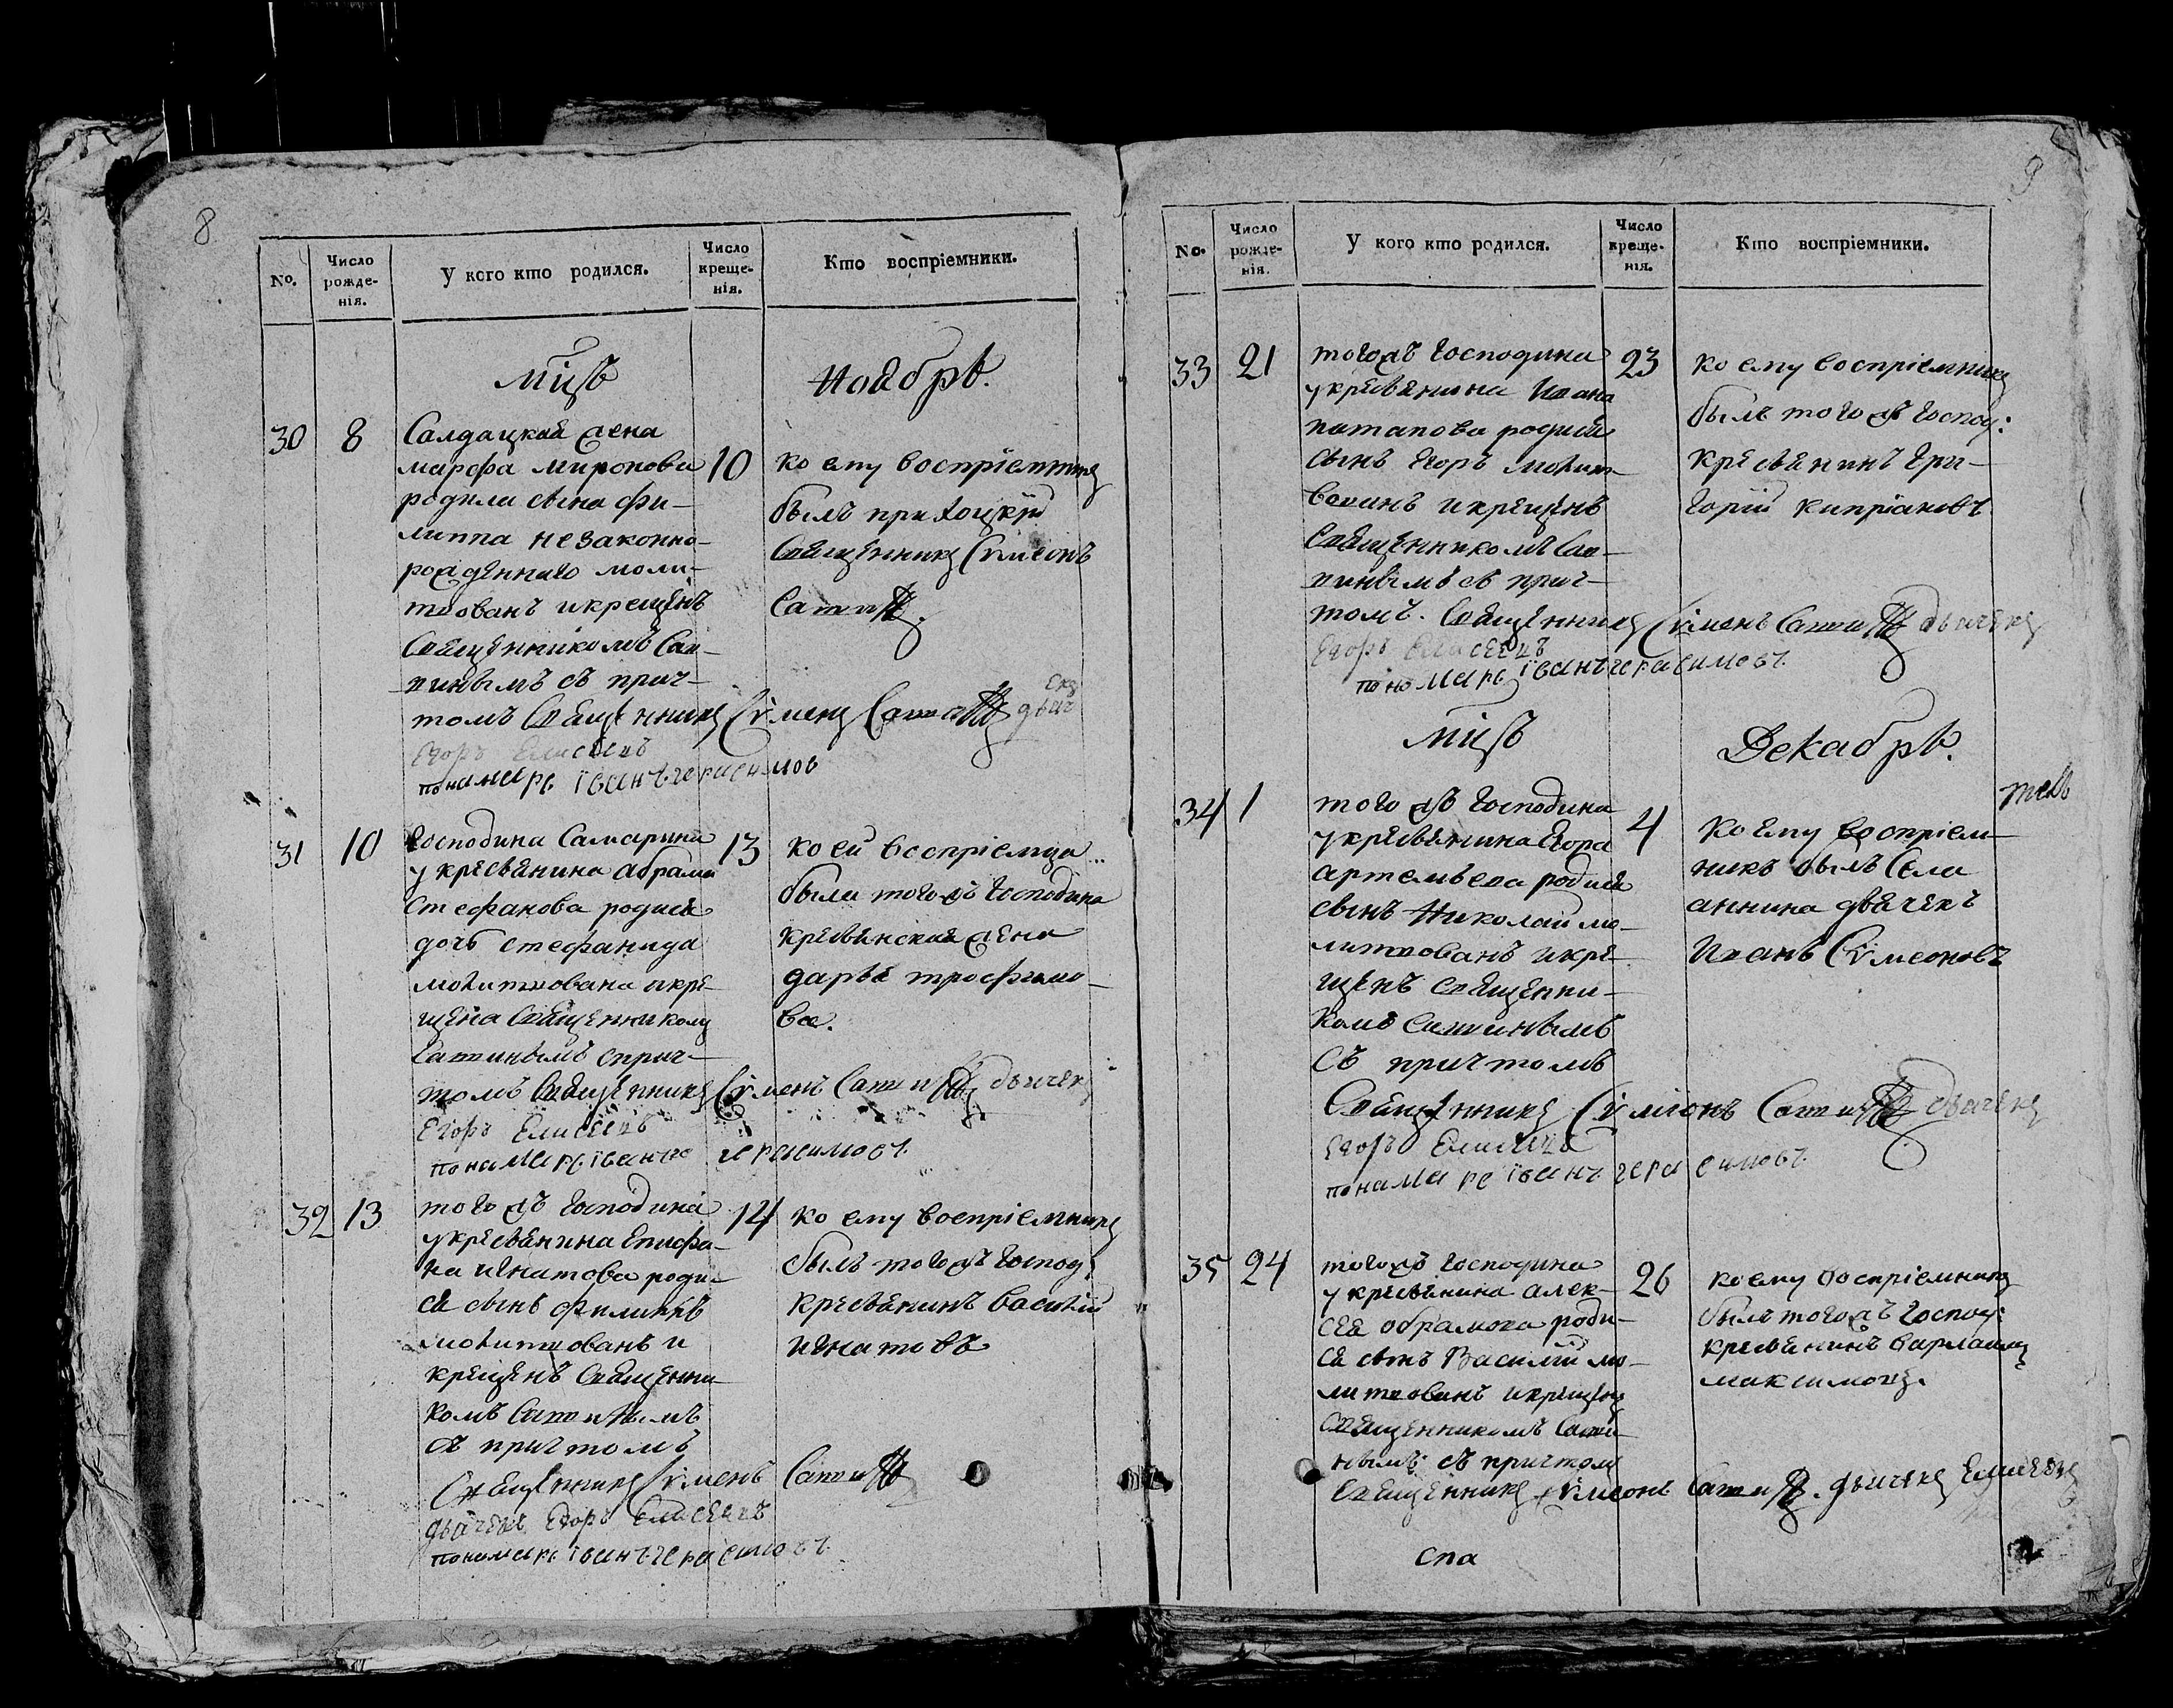 8
No.
Число рожденія.
У кого кто родился.
Число крещенія.
Кто воспріемники.
мцъ Ноября.
30 8
Салдацкая жена
марфа миронова
родила сына фи-
липпа незаконно-
рожденнаго моли-
твованъ и крещенъ
Священникомъ Сат-
тинымъ съ прич-
томъ Священникъ Сѵмеонъ Сатинъ дьяч
екъ
Егоръ Елисеевъ
пономарь iванъ герасимов
10
ко ему воспріемникъ
былъ прихоцкій
Священникъ Сѵмеонъ
Сатинъ.
31 10
Господина Самарина
у кресьянина абрама
Стефанова родися
дочь стефанида
молитвована и кре-
щена Священникомъ
Сатинымъ с прич-
томъ Священникъ Сѵмеонъ Сатинъ дьячекъ
Егоръ Елисеевъ
пономарь iванъ герасимовъ.
13
ко ей воспріемца
были того жъ Господина
кресьянская жена
дарья трофимо-
ва.
32 13
того жъ Господина
у кресьянина Епифа-
на игнатова роди-
ся сынъ филиппъ
молитвованъ и
крещенъ Священни-
комъ Сатинымъ
съ причтомъ
Священникъ Сѵмеонъ Сатинъ
дьячекъ Егоръ Елисеевъ
пономарь iванъ герасимовъ.
14
ко ему воспріемникъ
былъ того жъ Господ:
кресьянинъ Василій
игнатовъ
9
No.
Число рожденія.
У кого кто родился.
Число крещенія.
Кто воспріемники.
33 21
того жъ Господина
у кресьянина Ивана
патапова родися
сынъ Егоръ молит-
вованъ и крещенъ
Священникомъ Сат-
тинымъ съ прич-
томъ. Священникъ Сѵмеонъ Сатинъ дьячекъ
Егоръ Елисеевъ
пономарь iванъ герасимовъ.
23
ко ему воспріемникъ
былъ того жъ Господ:
кресьянинъ Гри-
горій кипріановъ
мцъ Декабрь.
34 1
того жъ Господина
у кресьянина Егора
артемьева родися
сынъ Николай мо-
литвованъ и кре-
щенъ Священни-
комъ Сатинымъ
съ причтомъ
Священникъ Сѵмеонъ Сатинъ дьячекъ
Егоръ Елисеевъ
пономарь iванъ герасимовъ.
4
ко ему воспріем-
никъ былъ Села
аннина дьячекъ
Иванъ Сѵмеоновъ
35 24
того жъ Господина
у кресьянина алек-
сея обрамова роди-
ся сынъ Василий мо-
литвованъ и крещенъ
Священникомъ Сати-
нымъ съ причтом
Священникъ Сѵмеонъ Сатинъ. дьячекъ Елисеевъ
26
ко ему воспріемникъ
былъ того жъ Господ:
кресьянинъ варламъ
максимовъ.
спа